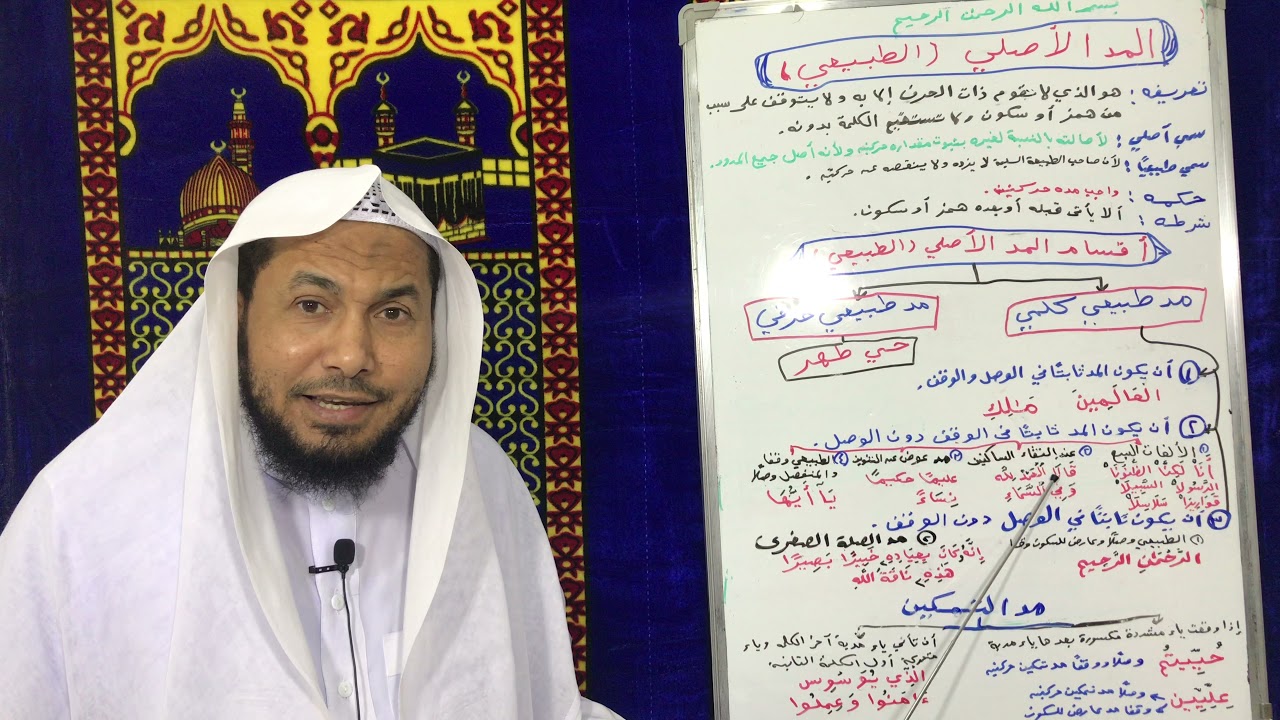 بسم الله الرحمن الرحيم
المد الأصلي (الطبيعي)
تعريفه: هو الذي لا تقوم ذات الحرف إلا به ولا يتوقف على سبب
من همز أو سكون
سمي أصلي: لأصالته بالنسبة لغيره بثبوت مقداره حركتيه ولأنه أصل جميع المدود.
سمي طبيعيًا: لأن صاحب الطبيعة السليمة لا يزده ولا ينقصه عن حركتيه.
حكمه: واجب مده حركتين.
شرطه: ألا يأتي قبله أو بعده همز أو سكون.
أقسام المد الأصلي (الطبيعي)
مد طبيعي كلمي
مد طبيعي حرفي
حي طهر
١ أن يكون المد ثابتًا في الوصل والوقف.
الْعَالَمِينَ مَٰلِكِ
٢ أن يكون المد ثابتًا في الوقف دون الوصل.
١ الألفات السبع ٢ عند التقاء الساكنين ٣ مد عوض عن التنوين ٤ الطبيعي وقفًا
والمنفصل وصلًا
أَنَا۠ لَّٰكِنَّا۠ الظُّنُونَا۠ عليمًا حكيمًا
الرَّسُولَا۠ السَّبِيلَا۠ وَفِي السَّمَاءِ نِسَاءً يَا أَيُّهَا
قَوَارِيرَا۠ سَلَاسِلَا۠
٣ أن يكون ثابتًا في الوصل دون الوقف.
١ الطبيعي وصلًا وعارض للسكون وقفًا ٢ مد الصلة الصغرى
الرَّحْمَٰنِ الرَّحِيمِ إِنَّهُ كَانَ بِعِبَادِهِ خَبِيرًا بَصِيرًا
هَٰذِهِ نَاقَةُ اللَّهِ
مد التمكين
إذا وقعت ياء مشددة مكسورة بعدها ياء مدية
حُيِّيتُم وصلًا ووقفًا مد تمكين حركتيه
عِلِّيِّينَ وصلًا مد تمكين حركتيه
وقفًا مد عارض للسكون
أن تأتي ياء مدية آخر الكلمة وياء
متحركة أول الكلمة الثانية
الَّذِي يُوَسْوِسُ
ءَامَنُوا وَعَمِلُوا